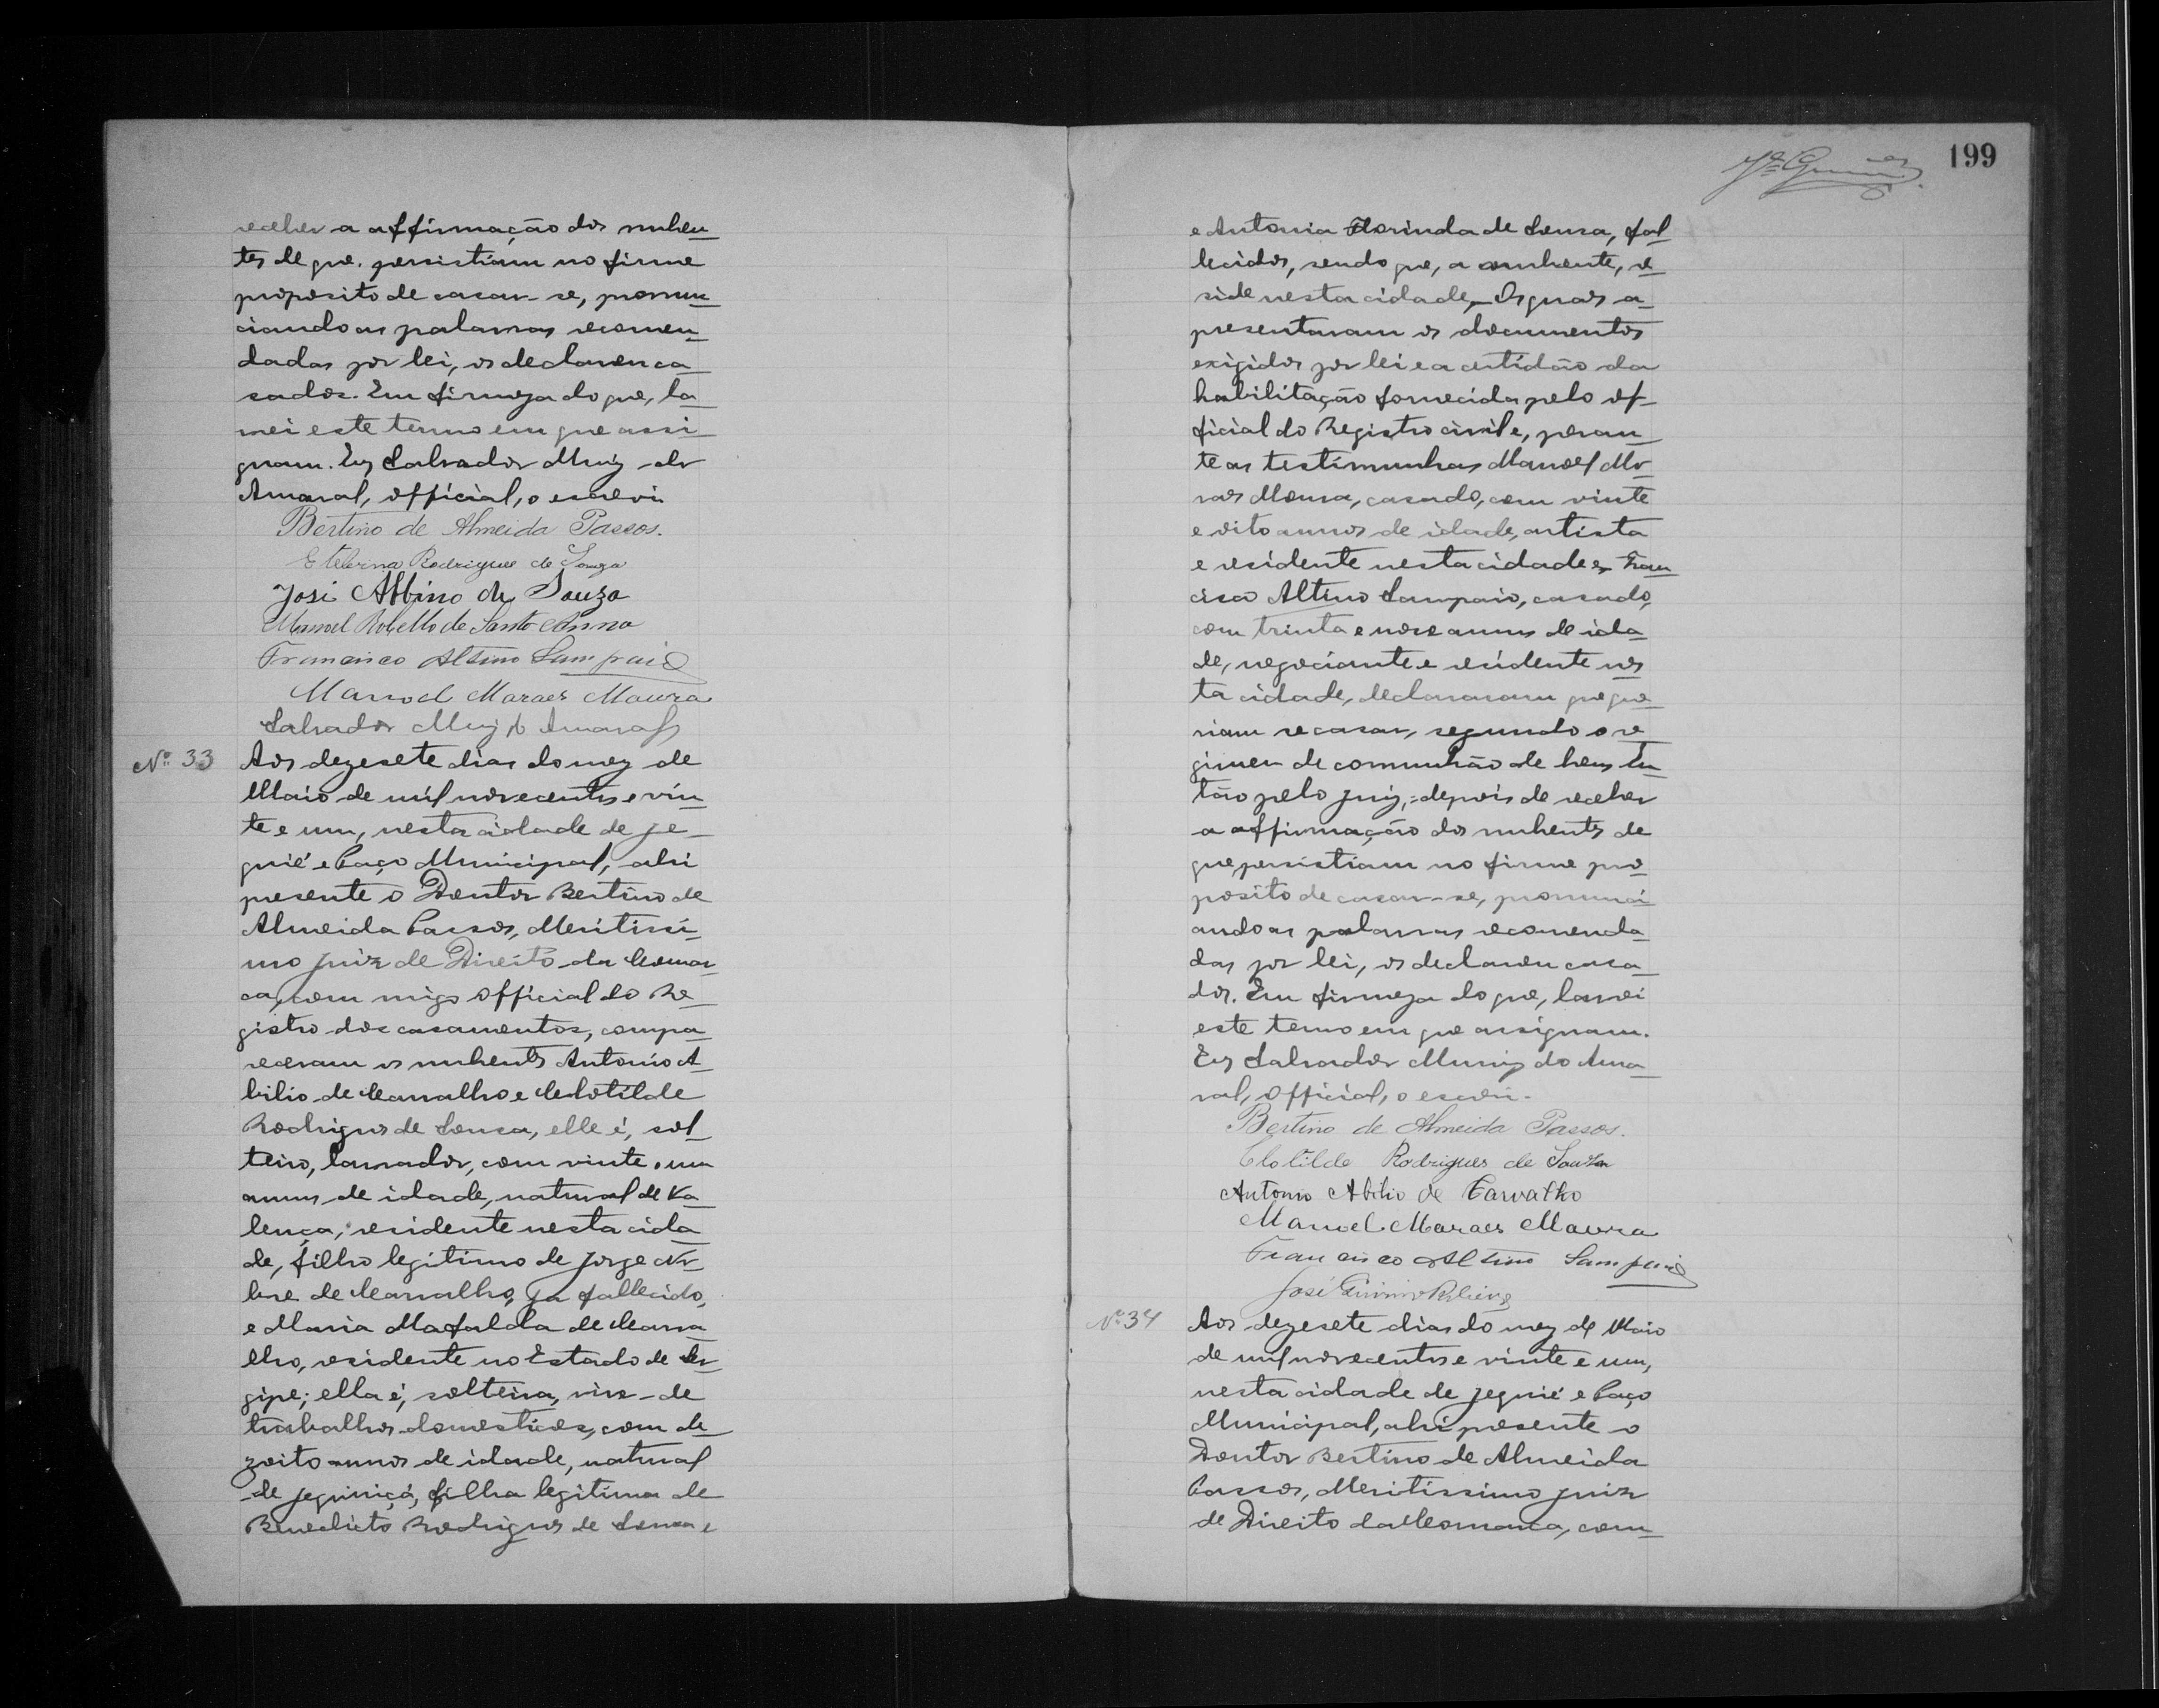 receber a affirmação dos nuben
tes de que persistiam no firme
proposito de casar-se, pronun
ciando as palavras recomen
dadas por lei, os declarou ca
sados. Em firmeza do que, la
vrei este termo em que assi
gnam. Eu Salvador Muniz do
Amaral, official, o escrevi
Bertino de Almeida Passos.
Etelvina Rodrigues de Souza
José Albino de Souza
Manoel Rabello de Sant'Anna
Francisco Altino Sampaio
Manoel Moraes Moura
Salvador Muniz do Amaral
Nº 33
Aos dezesete dias do mez de
Maio de mil novecentos e vin
te e um, nesta cidade de Je
quié e Paço Municipal, ahi
presente o Doutor Bertino de
Almeida Passos, Meritissi
mo Juiz de Direito da Comar
ca, com migo official do Re
gistro dos casamentos, compa
receram os nubentes Antonio A
bilio de Carvalho e Clotilde
Rodrigues de Sousa, elle é, sol
teiro, lavrador, com vinte e um
annos de idade, natural de Va
lença, residente nesta cida
de, filho legitimo de Jorge No
bre de Carvalho, ja fallecido,
e Maria Mafalda de Carva
lho, residente no Estado de Ser
gipe; ella é, solteira, vive de
trabalhos domesticos, com de
zoito annos de idade, natural
de Jequiriçá, filha legitima de
Benedicto Rodrigues de Sousa e
199
e Antonia Florinda de Sousa, fal
lecidos, sendo que, a nubente, re
side nesta cidade, Os quaes a
presentaram os documentos
exigidos por lei e a certidão da
habilitação fornecida pelo of
ficial do Registro civil e, peran
te as testimunhas Manoel Mo
raes Moura, casado, com vinte
e oito annos de idade, artista
e residente nesta cidade e Fran
cisco Altino Sampaio, casado,
com trinta e nove annos de ida
de, negociante e residente nes
ta cidade, declararam que que
riam se casar, segundo o re
gimen de comunhão de bens En
tão pelo Juiz, depois de receber
a affirmação dos nubentes de
que persistiam no firme pro
posito de casar-se, pronunci
ando as palavras recomenda
das por lei, os declarou casa
dos. Em firmeza do que, lavrei
este termo em que assignam.
Eu Salvador Muniz do Ama
ral, official, o escrevi.
Bertino de Almeida Passos.
Clotilde Rodrigues de Souza
Antonio Abilio de Carvalho
Manoel Moraes Moura
Francisco Altino Sampaio
José
Nº 34
Aos dezesete dias do mez de Maio
de mil novecentos e vinte e um,
nesta cidade de Jequié e Paço
Municipal, ahi presente o
Doutor Bertino de Almeida
Passos, Meritissimo Juiz
de Direito da Comarca, com